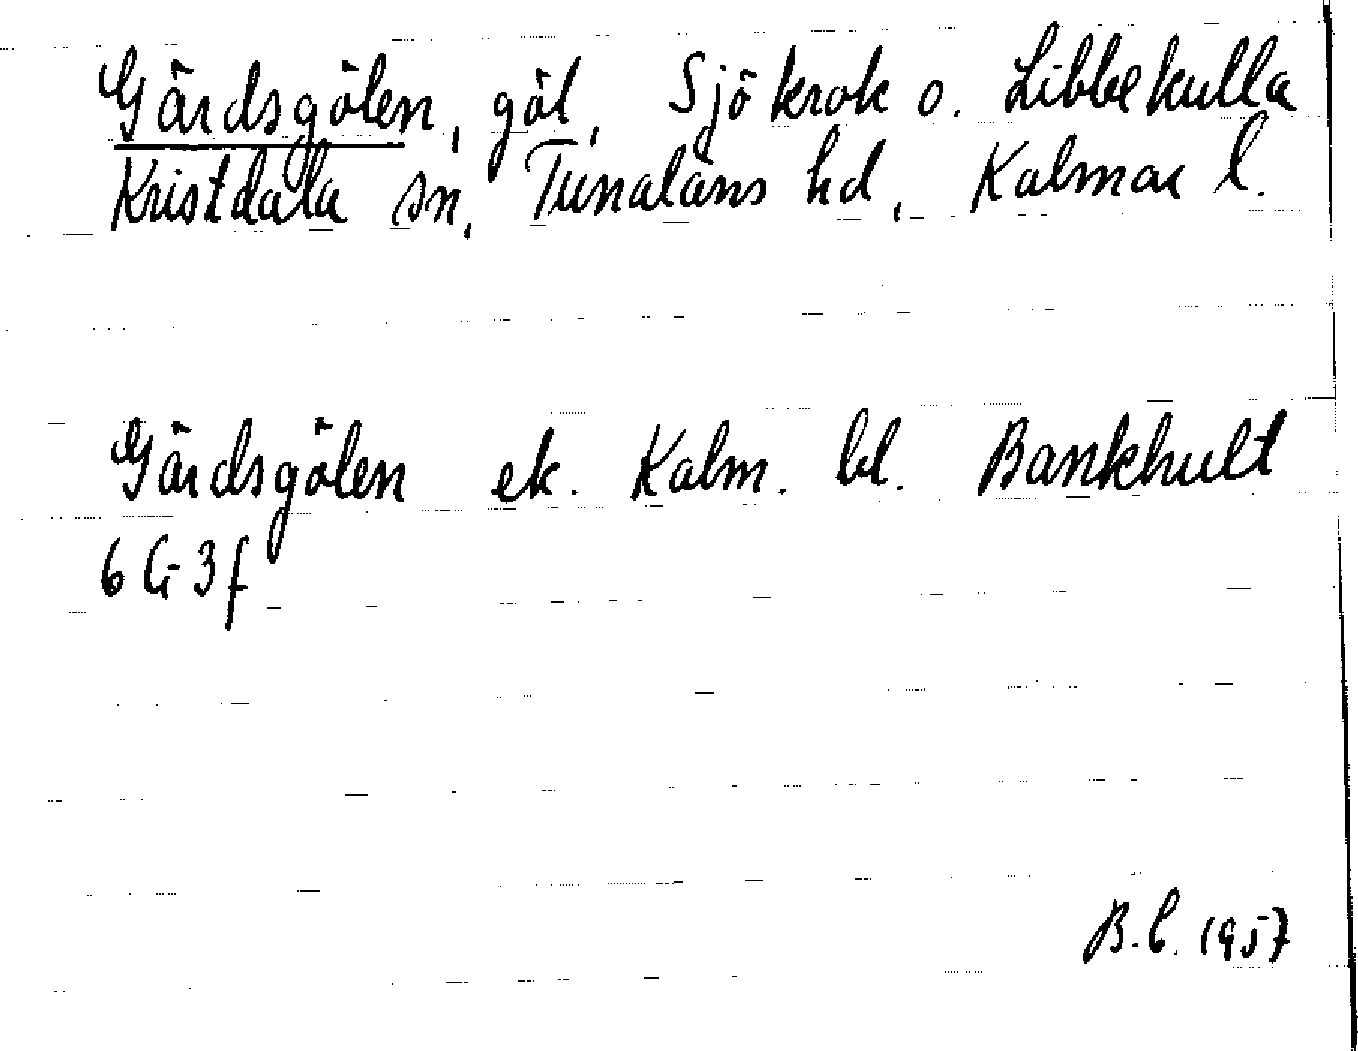 Gårdsgölen, göl, Sjökrok o. Libbekulla
Kristdala sn, Tunaläns hd, Kalmar l.
Gårdsgölen ek. Kalm. bl. Bankhult
6 G 3 f
B.C. 1957